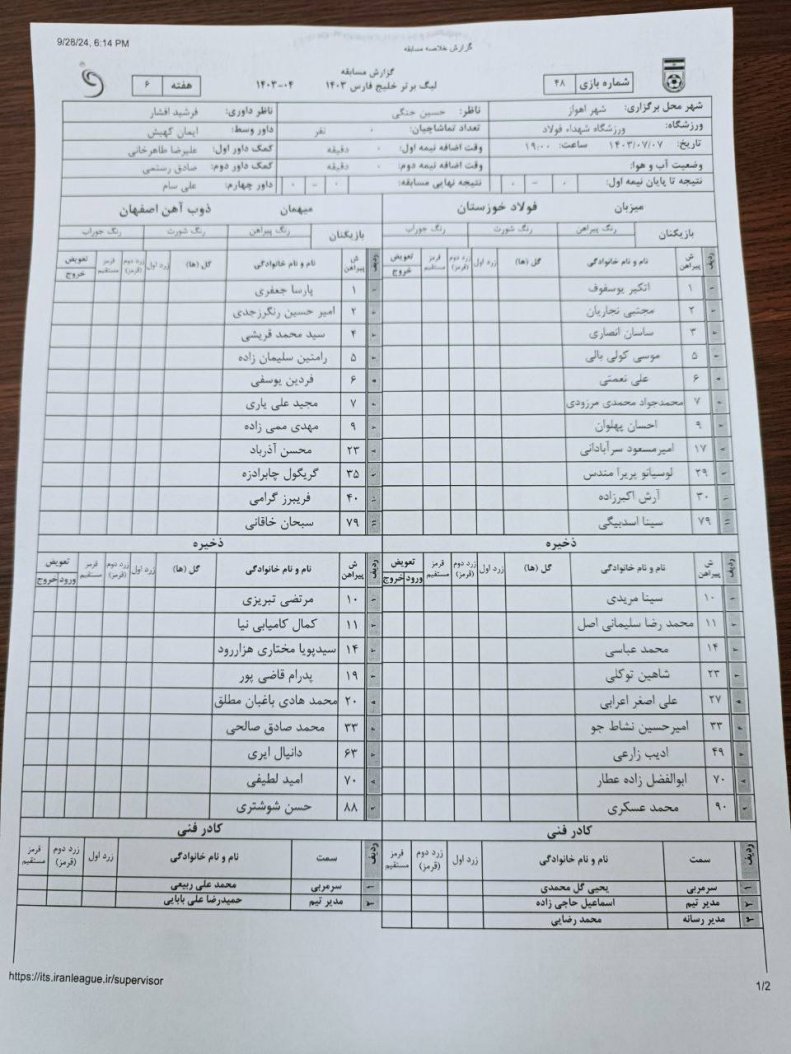 9/28/24, 6:14 PM
گزارش خلاصه مسابقه
گزارش مسابقه
شماره بازی ۴۸
لیگ برتر خلیج فارس ۱۴۰۳ ۱۴۰۳-۰۴
هفته ۶
شهر محل برگزاری: شهر اهواز ناظر: حسین جنگی ناظر داوری: فرشید افشار
ورزشگاه: ورزشگاه شهداء فولاد تعداد تماشاچیان: ۰ نفر داور وسط: ایمان کهیش
تاریخ: ۱۴۰۳/۰۷/۰۷ ساعت: ۱۹:۰۰ وقت اضافه نیمه اول: ۰ دقیقه کمک داور اول: علیرضا طاهرخانی
وضعیت آب و هوا: وقت اضافه نیمه دوم: ۰ دقیقه کمک داور دوم: صادق رستمی
نتیجه تا پایان نیمه اول: ۰ - ۰ نتیجه نهایی مسابقه: ۰ - ۰ داور چهارم: علی سام
میزبان فولاد خوزستان
بازیکنان رنگ پیراهن رنگ شورت رنگ جوراب
ردیف ش پیراهن نام و نام خانوادگی گل (ها) زرد اول زرد دوم (قرمز) قرمز مستقیم تعویض خروج
۱ ۱ اتکیر یوسفوف
۲ ۲ مجتبی نجاریان
۳ ۳ ساسان انصاری
۴ ۵ موسی کولی بالی
۵ ۶ علی نعمتی
۶ ۷ محمدجواد محمدی مرزودی
۷ ۹ احسان پهلوان
۸ ۱۷ امیرمسعود سرآبادانی
۹ ۲۹ لوسیانو پریرا مندس
۱۰ ۳۰ آرش اکبرزاده
۱۱ ۷۹ سینا اسدبیگی
ذخیره
ردیف ش پیراهن نام و نام خانوادگی گل (ها) زرد اول زرد دوم (قرمز) قرمز مستقیم تعویض ورود خروج
۱ ۱۰ سینا مریدی
۲ ۱۱ محمد رضا سلیمانی اصل
۳ ۱۴ محمد عباسی
۴ ۲۳ شاهین توکلی
۵ ۲۷ علی اصغر اعرابی
۶ ۳۳ امیرحسین نشاط جو
۷ ۴۹ ادیب زارعی
۸ ۷۰ ابوالفضل زاده عطار
۹ ۹۰ محمد عسکری
کادر فنی
ردیف سمت نام و نام خانوادگی زرد اول زرد دوم (قرمز) قرمز مستقیم
۱ سرمربی یحیی گل محمدی
۲ مدیر تیم اسماعیل حاجی زاده
۳ مدیر رسانه محمد رضایی
میهمان ذوب آهن اصفهان
بازیکنان رنگ پیراهن رنگ شورت رنگ جوراب
ردیف ش پیراهن نام و نام خانوادگی گل (ها) زرد اول زرد دوم (قرمز) قرمز مستقیم تعویض خروج
۱ ۱ پارسا جعفری
۲ ۲ امیر حسین رنگرزجدی
۳ ۴ سید محمد قریشی
۴ ۵ رامتین سلیمان زاده
۵ ۶ فردین یوسفی
۶ ۷ مجید علی یاری
۷ ۹ مهدی ممی زاده
۸ ۲۳ محسن آذرباد
۹ ۳۵ گریگول چابرادزه
۱۰ ۴۰ فریبرز گرامی
۱۱ ۷۹ سبحان خاقانی
ذخیره
ردیف ش پیراهن نام و نام خانوادگی گل (ها) زرد اول زرد دوم (قرمز) قرمز مستقیم تعویض ورود خروج
۱ ۱۰ مرتضی تبریزی
۲ ۱۱ کمال کامیابی نیا
۳ ۱۴ سیدپویا مختاری هزاررود
۴ ۱۹ پدرام قاضی پور
۵ ۲۰ محمد هادی باغبان مطلق
۶ ۳۳ محمد صادق صالحی
۷ ۶۳ دانیال ایری
۸ ۷۰ امید لطیفی
۹ ۸۸ حسن شوشتری
کادر فنی
ردیف سمت نام و نام خانوادگی زرد اول زرد دوم (قرمز) قرمز مستقیم
۱ سرمربی محمد علی ربیعی
۲ مدیر تیم حمیدرضا علی بابایی
https://its.iranleague.ir/supervisor
1/2